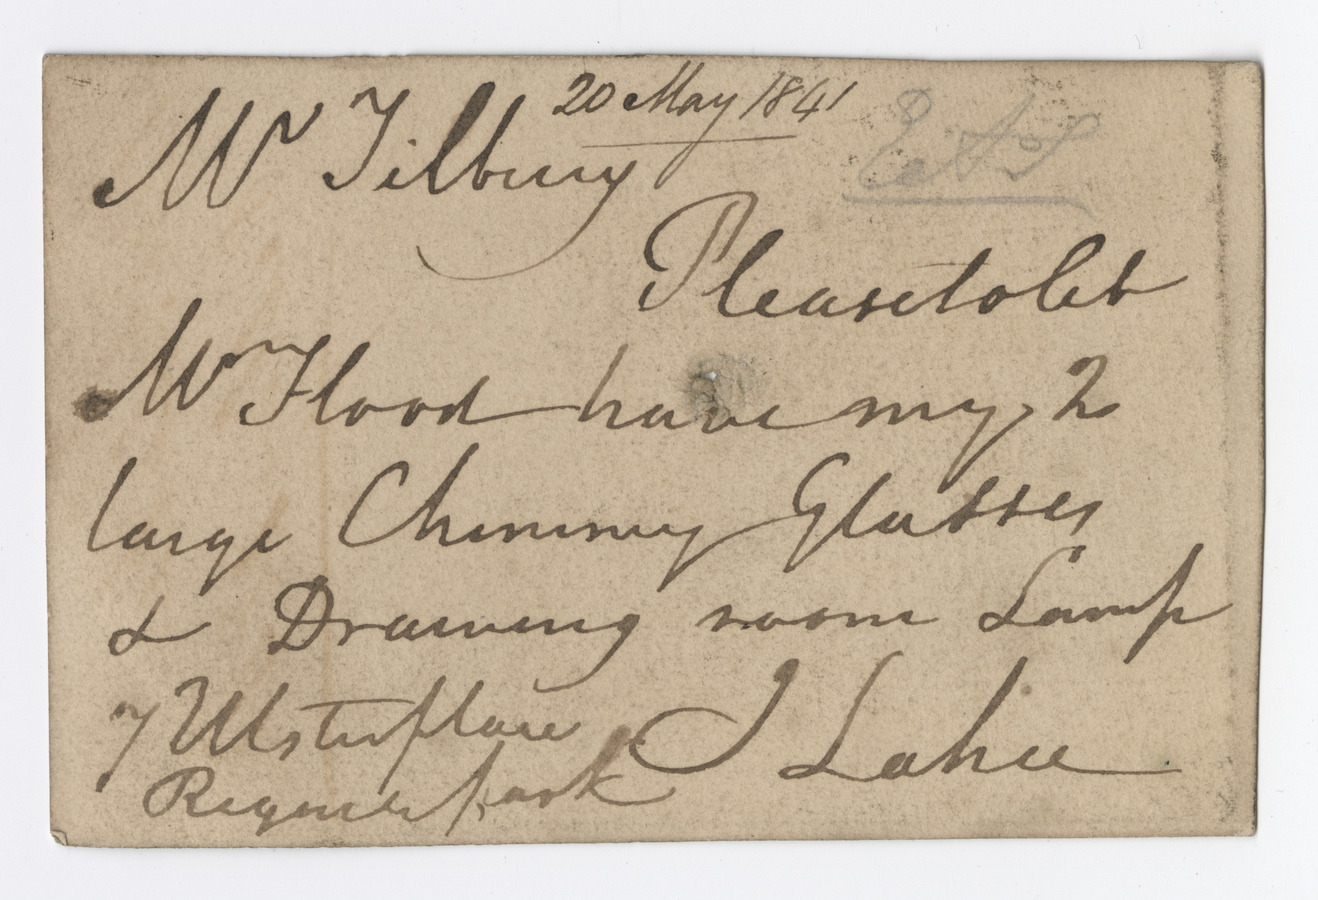 20 May 1841
Mr Tilbury
Please to let
Mr Flood have my 2
large Chimney Glasses
& Drawing room Lamp
7 Ulster place
Regents park
J Lahee